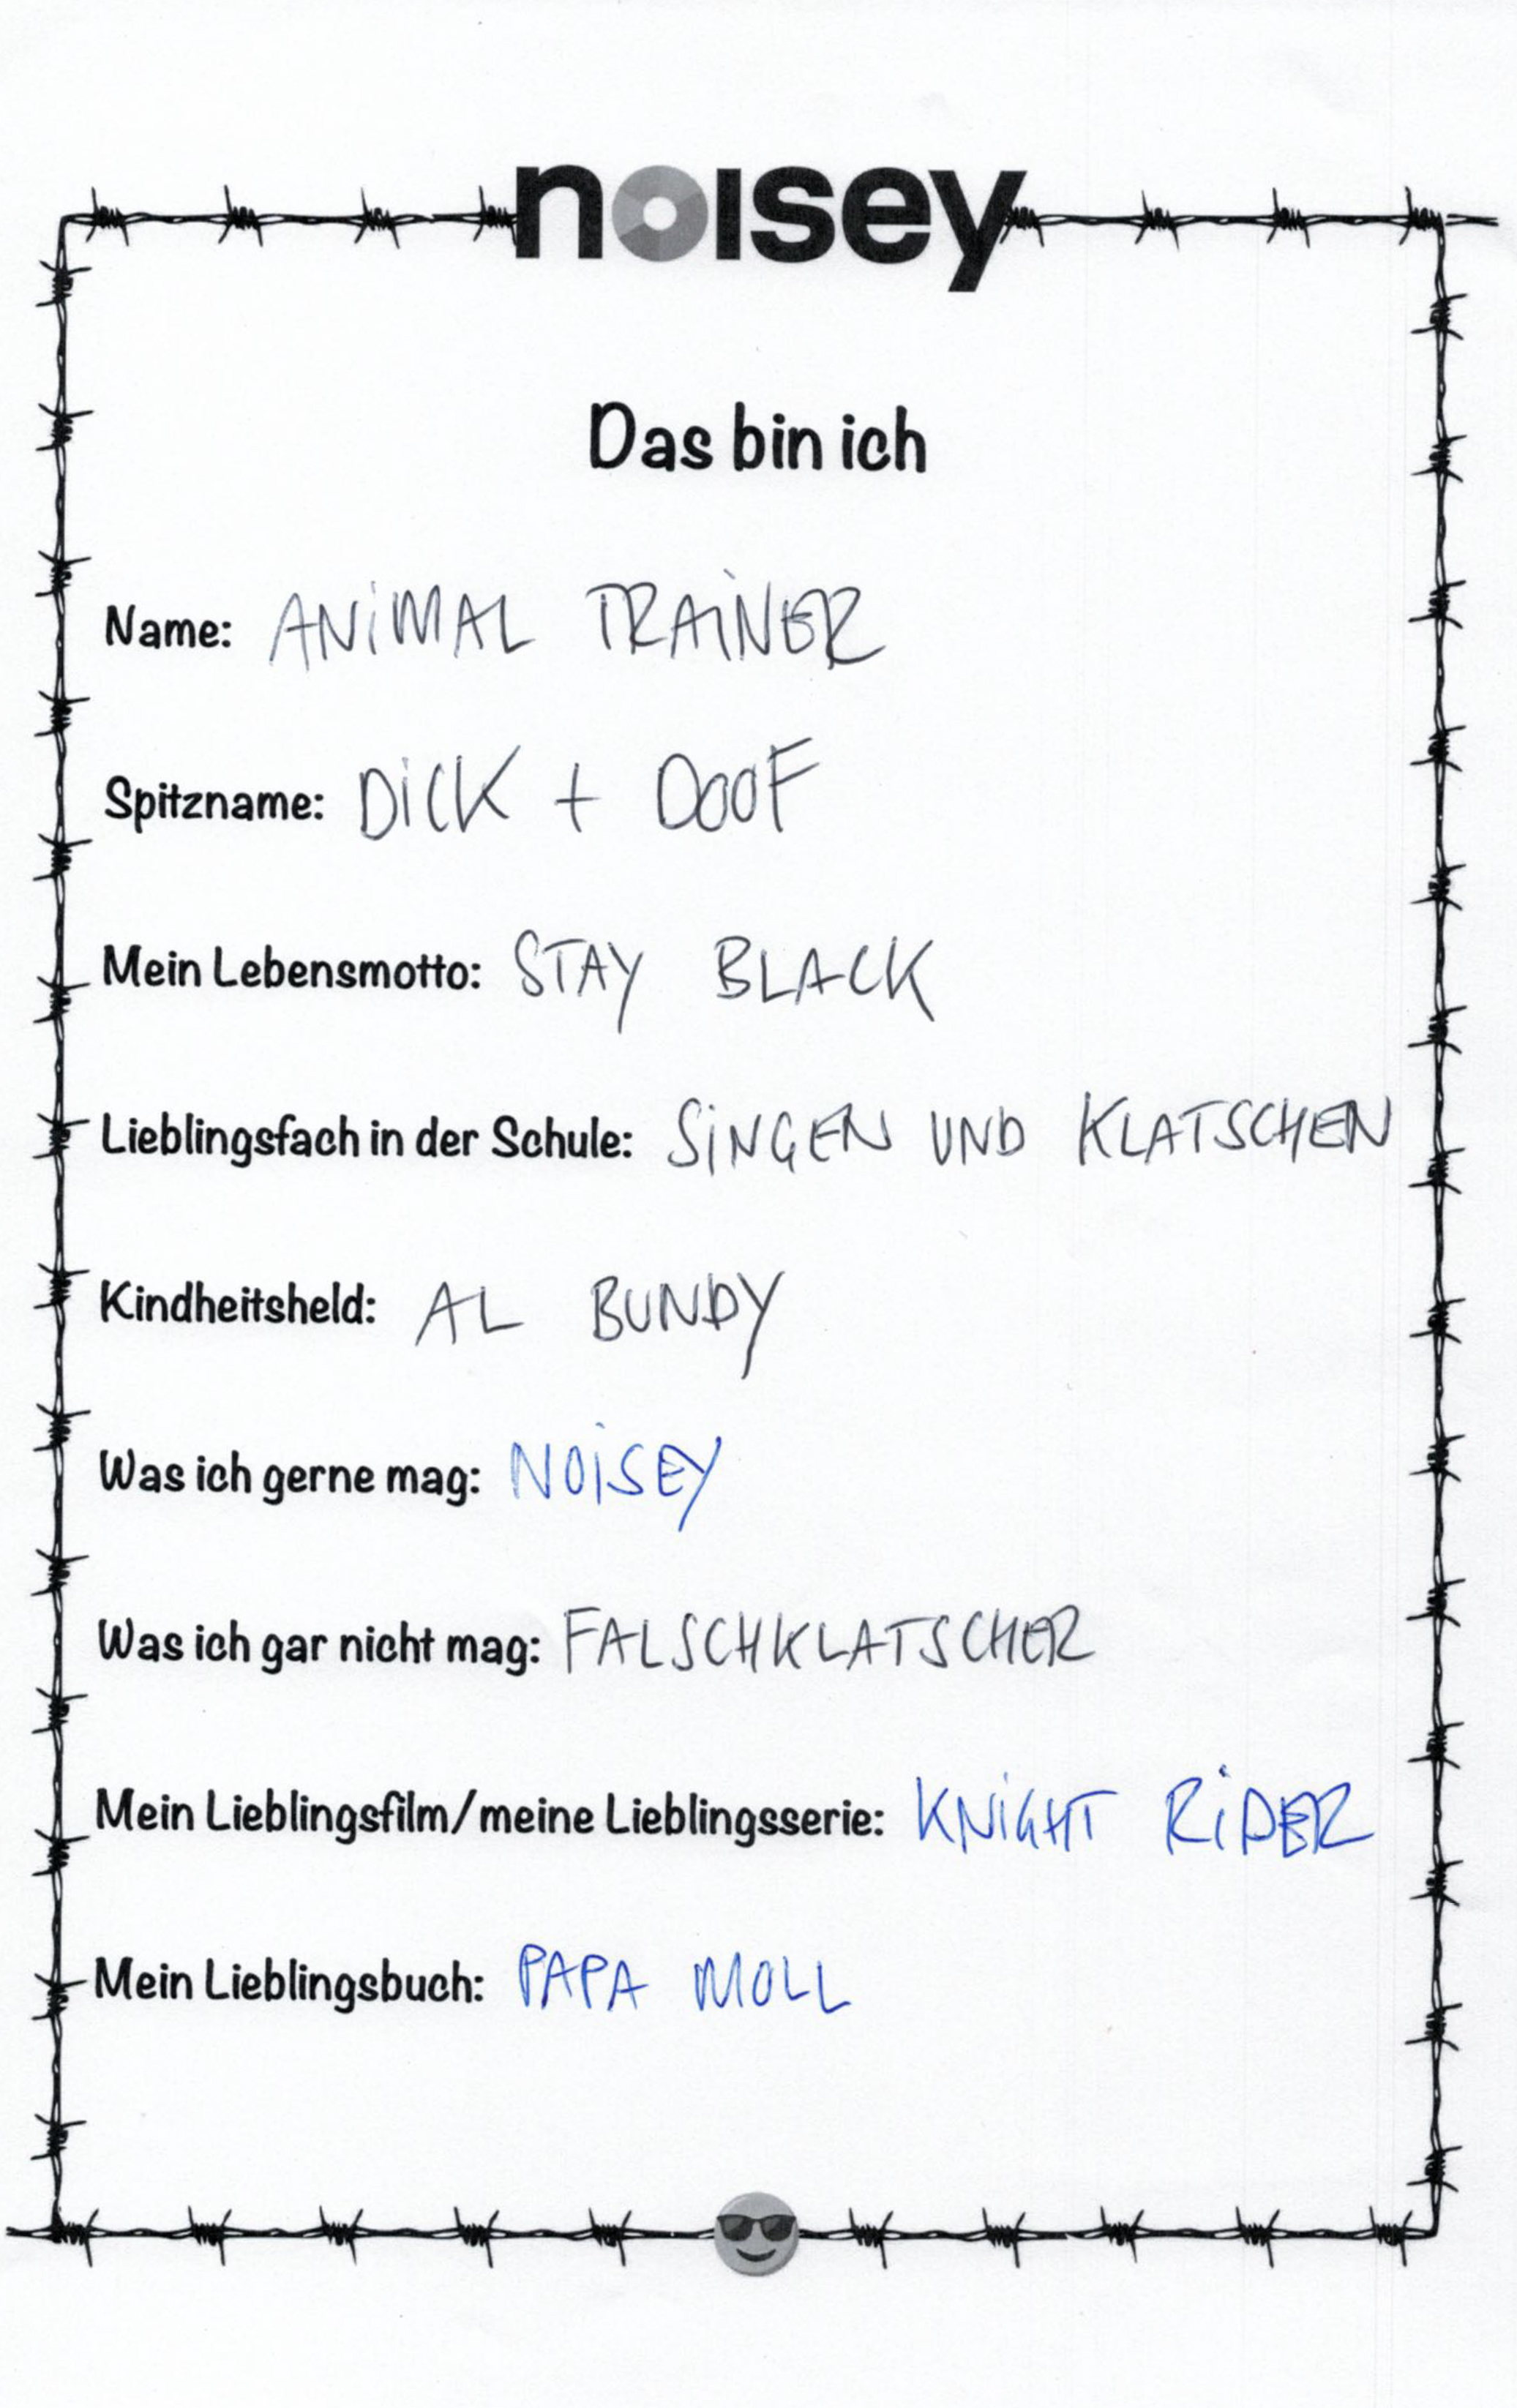 noisey
Das bin ich
Name: ANiMAL TRAiNER
Spitzname: DiCK + DOOF
Mein Lebensmotto: STAY BLACK
Lieblingsfach in der Schule: SiNGEN UND KLATSCHEN
Kindheitsheld: AL BUNDY
Was ich gerne mag: NOiSEY
Was ich gar nicht mag: FALSCHKLATSCHER
Mein Lieblingsfilm/meine Lieblingsserie: KNiGHT RiDER
Mein Lieblingsbuch: PAPA MOLL